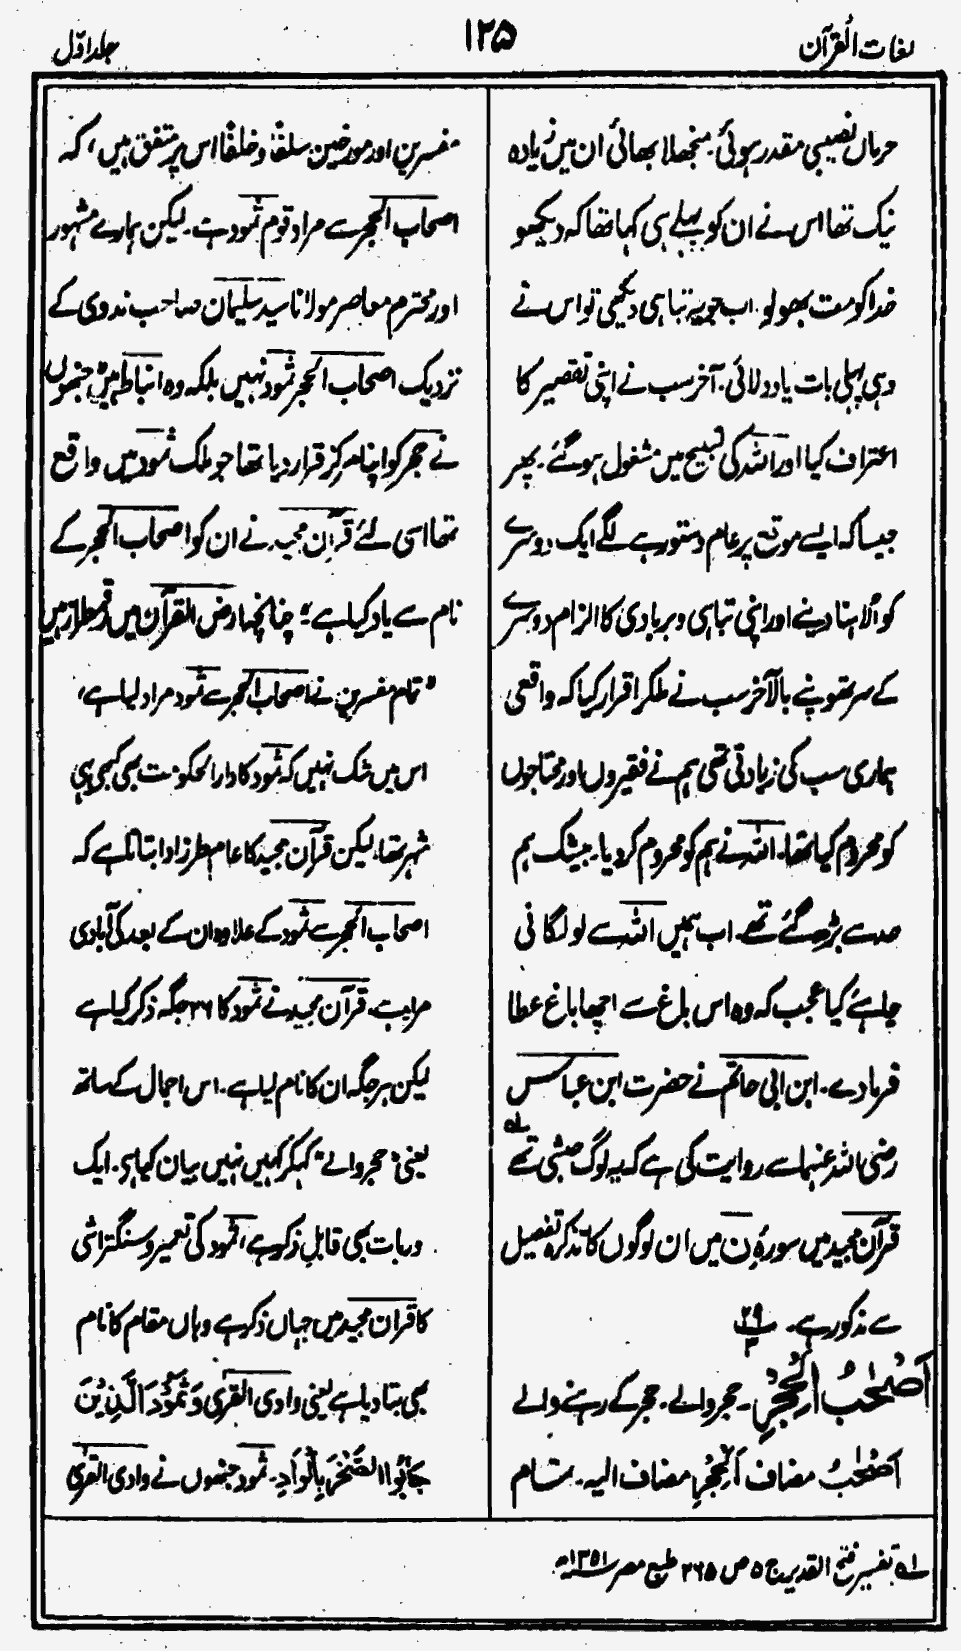 لغات القرآن
۱۲۵
جلد اوّل
حرماں نصیبی مقدر ہوئی۔ منجھلا بھائی ان میں زیادہ
نیک تھا اس نے ان کو پہلے ہی کہا تھا کہ دیکھو
خدا کو مت بھولو۔ اب جو یہ تباہی دیکھی تو اس نے
وہی پہلی بات یاد دلائی۔ آخر سب نے اپنی تقصیر کا
اعتراف کیا اور اللہ کی تسبیح میں مشغول ہوگئے۔ پھر
جیسا کہ ایسے موقع پر عام دستور ہے لگے ایک دوسرے
کو اُلاہنا دینے اور اپنی تباہی و بربادی کا الزام دوسرے
کے سر تھوپنے بالآخر سب نے ملکر اقرار کیا کہ واقعی
ہماری سب کی زیادتی تھی ہم نے فقیروں اور محتاجوں
کو محروم کیا تھا۔ اللہ نے ہم کو محروم کردیا۔ بیشک ہم
حد سے بڑھ گئے تھے۔ اب ہمیں اللہ سے لو لگانی
چاہئے کیا عجب کہ وہ اس باغ سے اچھا باغ عطا
فرمادے۔ ابن ابی حاتم نے حضرت ابن عباس
رضی اللہ عنہما سے روایت کی ہے کہ یہ لوگ حبشی تھے ۱ہ
قرآن مجید میں سورۂ ن میں ان لوگوں کا تذکرہ تفصیل
سے مذکور ہے۔ ۲۹ ۳
اَصْحٰبُ الْحِجْرِ۔ حجر والے۔ حجر کے رہنے والے
اَصْحٰبُ مضاف اَلْحِجْرِ مضاف الیہ۔ تمام
مفسرین اور مورخین سلفًا و خلفًا اس پر متفق ہیں، کہ
اصحاب الحجر سے مراد قوم ثمود ہے۔ لیکن ہمارے مشہور
اور محترم معاصر مولانا سید سلیمان صاحب ندوی کے
نزدیک اصحاب الحجر ثمود نہیں بلکہ وہ انباط ہیں جنھوں
نے حجر کو اپنا مرکز قرار دیا تھا جو ملک ثمود میں واقع
تھا اسی لئے قرآن مجید نے ان کو اصحاب الحجر کے
نام سے یاد کیا ہے؛ چنانچہ ارض القرآن میں رقمطراز ہیں
"تمام مفسرین نے اصحاب الحجر سے ثمود مراد لیا ہے،
اس میں شک نہیں کہ ثمود کا دار الحکومت بھی کبھی یہی
شہر تھا، لیکن قرآن مجید کا عام طرز ادا بتاتا ہے کہ
اصحاب الحجر سے ثمود کے علاوہ ان کے بعد کی آبادی
مراد ہے۔ قرآن مجید نے ثمود کا ۲۶ جگہ ذکر کیا ہے
لیکن ہر جگہ ان کا نام لیا ہے۔ اس اجمال کے ساتھ
یعنی "حجر والے" کہکر کہیں نہیں بیان کیا ہی۔ ایک
و بات بھی قابل ذکر ہے، ثمود کی تعمیر و سنگتراشی
کا قرآن مجید میں جہاں ذکر ہے وہاں مقام کا نام
بھی بتا دیا ہے یعنی وادی القریٰ وَثَمُوْدَ الَّذِیْنَ
جَابُوا الصَّخْرَ بِالْوَادِ۔ ثمود جنھوں نے وادی القریٰ
۱ہ تفسیر فتح القدیر ج ۵ ص ۲۶۵ طبع مصر ۱۳۵۱ھ